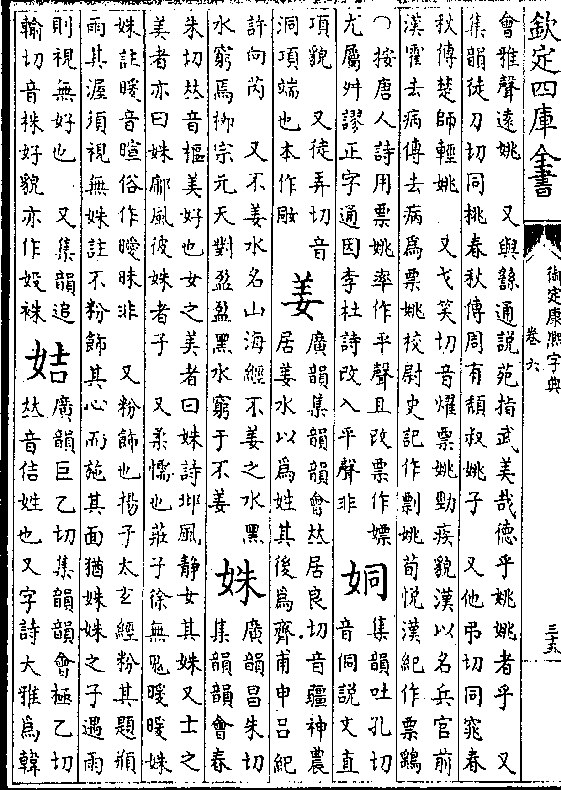 欽定四庫全書
御定康熙字典
卷六
三五
會雅聲遠姚 又與繇通說苑指武美哉德乎姚姚者乎 又
集韻徒刀切同桃春秋傳周有頹叔姚子 又他弔切同窕春
秋傳楚師輕姚 又弋笑切音燿票姚勁疾貌漢以名兵官前
漢霍去病傳去病爲票姚校尉史記作剽姚荀悅漢紀作票鷂
○按唐人詩用票姚率作平聲且改票作嫖
尤屬舛謬正字通因李杜詩改入平聲非
姛
集韻吐孔切
音侗說文直
項貌 又徒弄切音
洞項端也本作
姜
廣韻集韻韻會𠀤居良切音疆神農
居姜水以爲姓其後爲齊甫申呂紀
許向芮 又不姜水名山海經不姜之水黑
水窮焉栁宗元天對盈盈黑水窮于不姜
姝
廣韻昌朱切
集韻韻會春
朱切𠀤音樞美好也女之美者曰姝詩邶風靜女其姝又士之
美者亦曰姝鄘風彼姝者子 又柔懦也莊子徐無鬼暖暖姝
姝註暖音暄俗作曖昧非 又粉飾也揚子太玄經粉其題頯
雨其渥須視無姝註不粉飾其心而施其面猶姝姝之子遇雨
則視無好也 又集韻追
輸切音袾好貌亦作㚲袾
姞
廣韻巨乙切集韻韻會極乙切
𠀤音佶姓也又字詩大雅爲韓